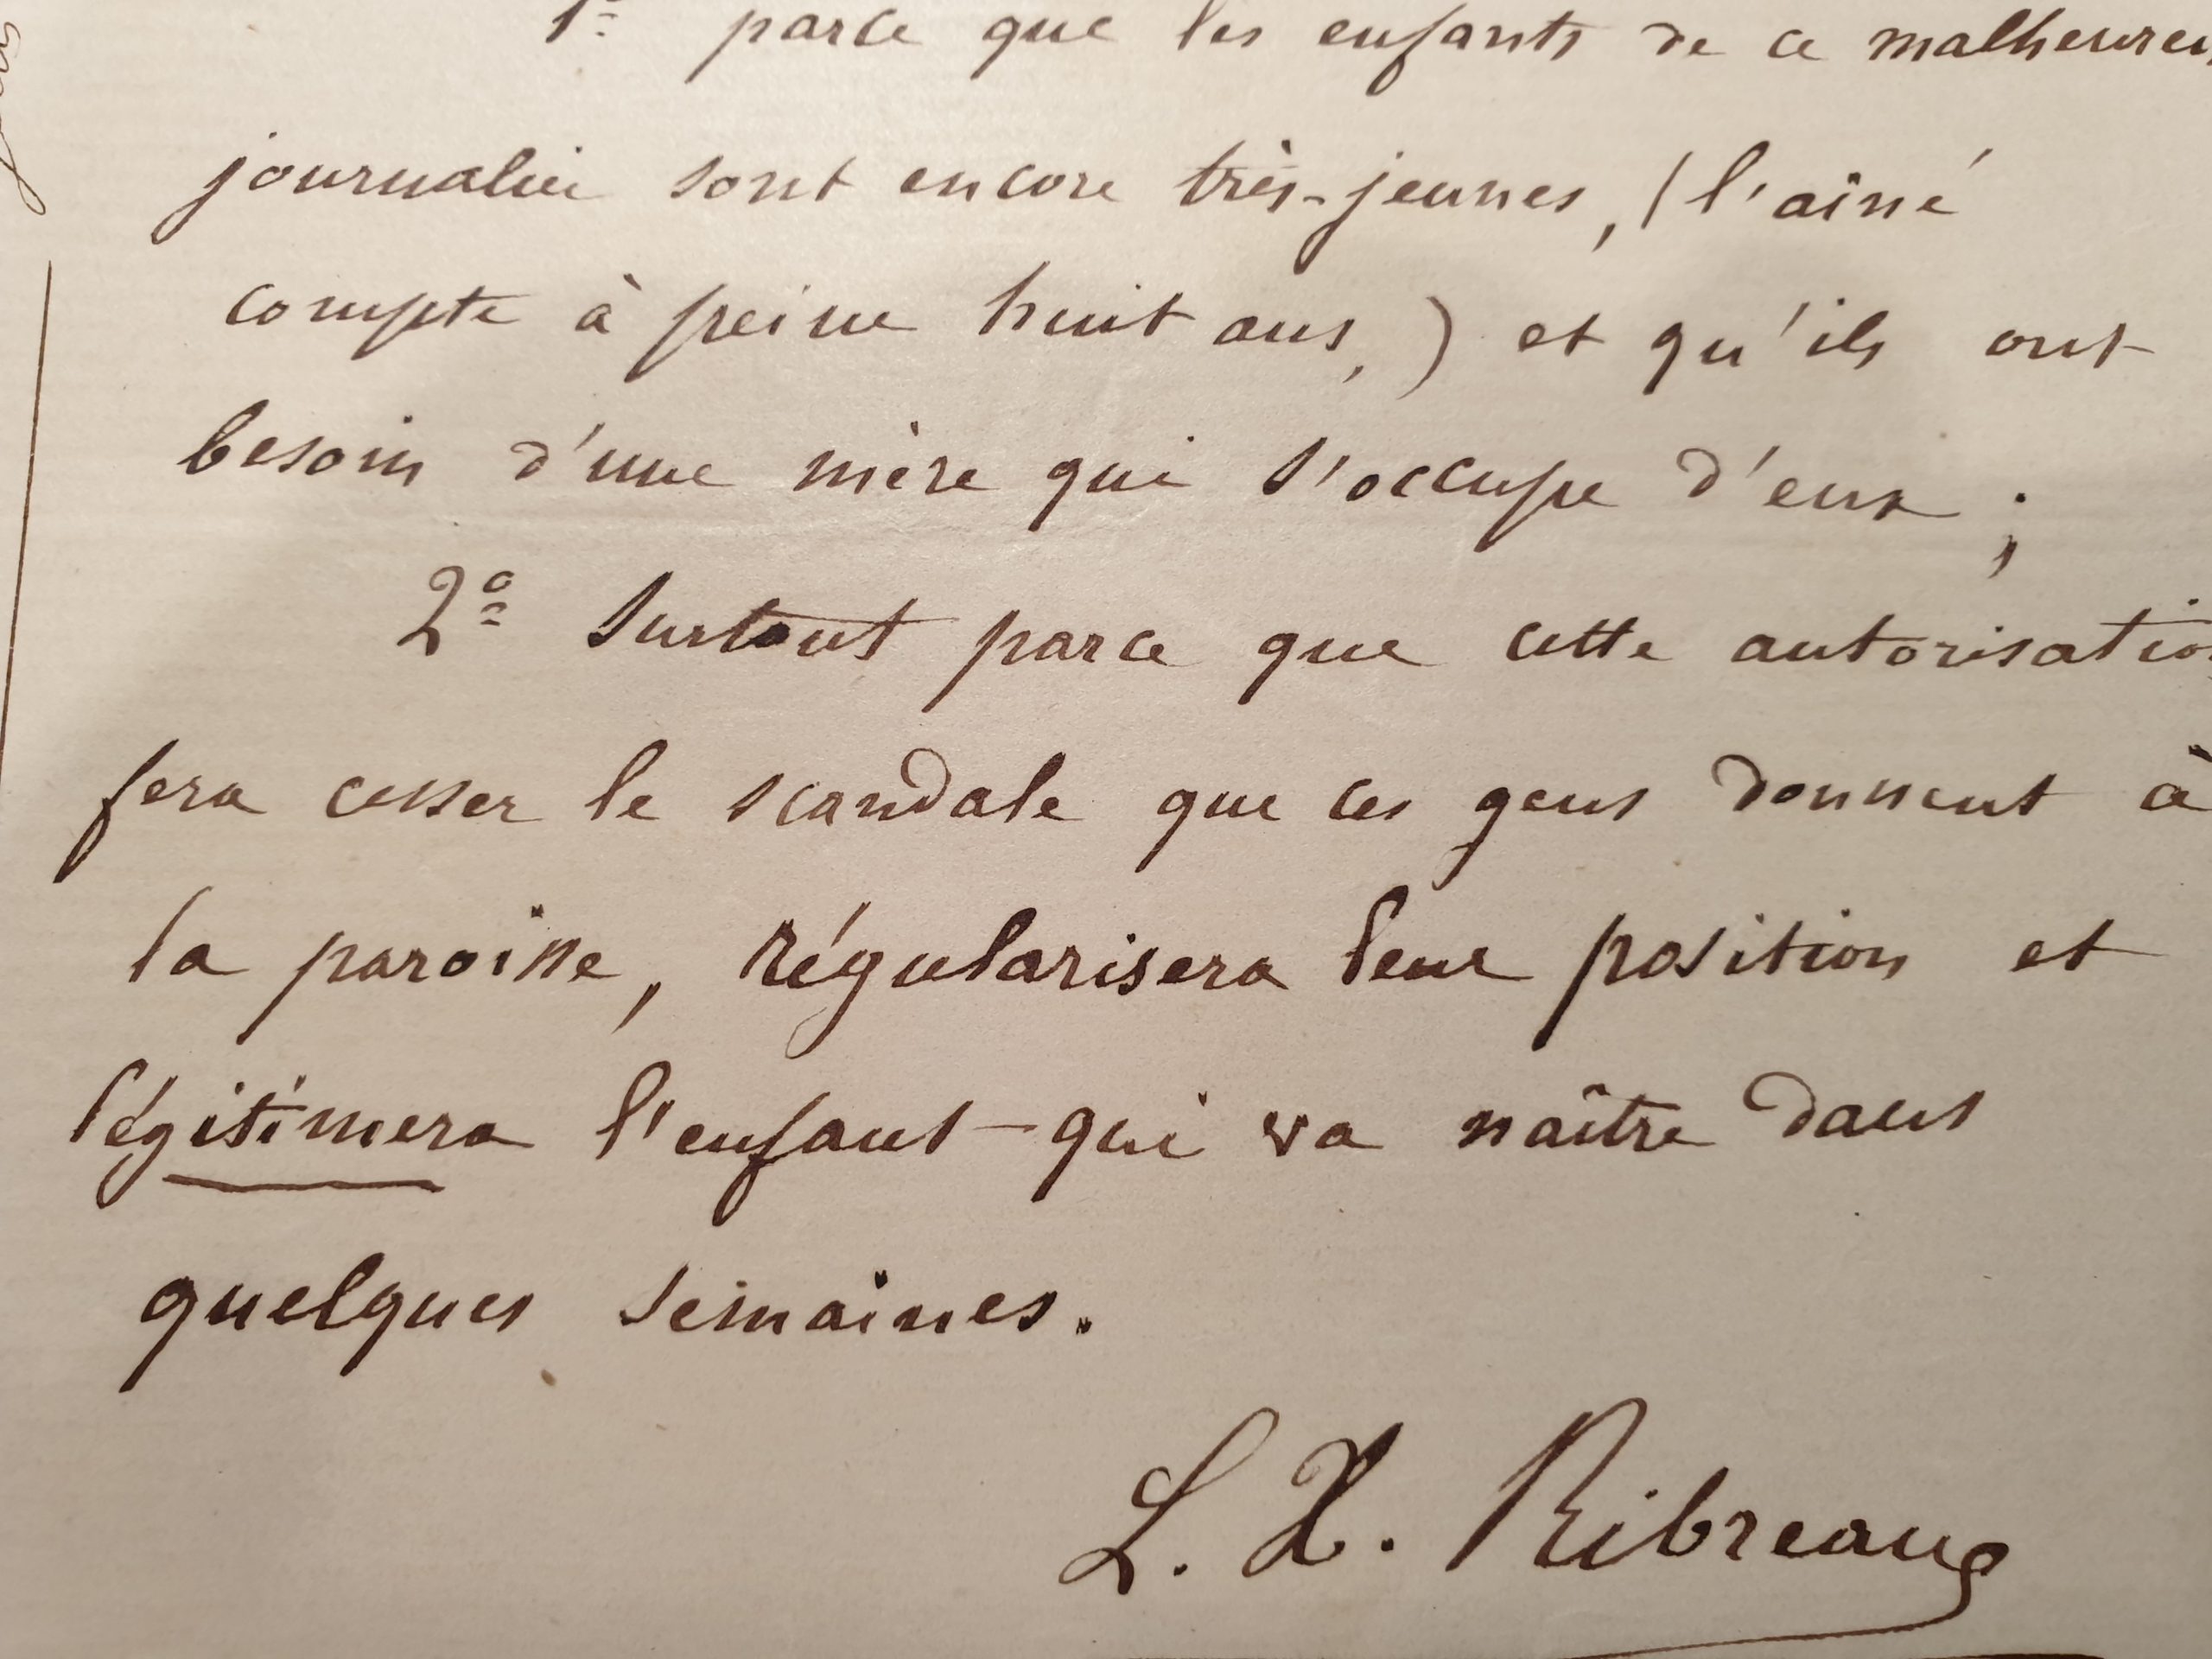 1º parce que les enfants de ce malheureu
journalier sont encore très-jeunes, (l'aîné
compte à peine huit ans,) et qu'ils ont
besoin d'une mère qui s'occupe d'eux ;
2º Surtout parce que cette autorisatio
fera cesser le scandale que ces gens donnent à
la paroisse, régularisera leur position et
légitimera l'enfant qui va naître dans
quelques semaines.
L. X. Ribreau